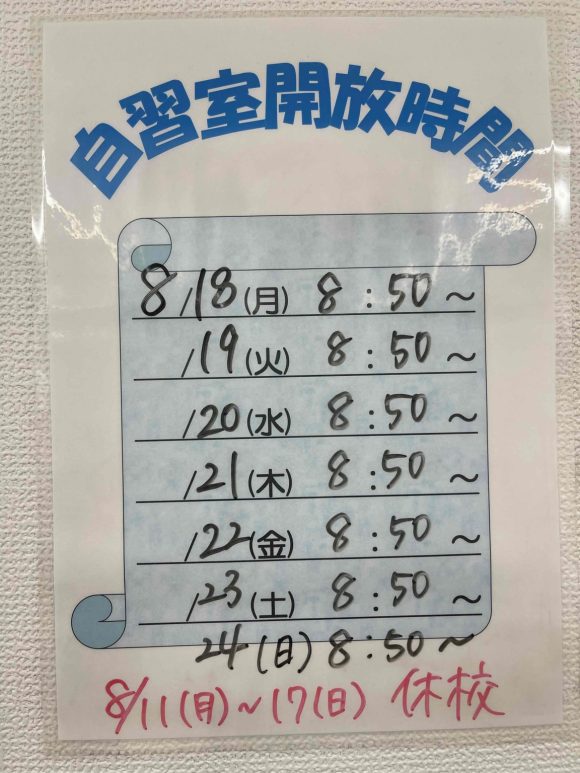 自習室開放時間
8/18(月) 8:50~
/19(火) 8:50~
/20(水) 8:50~
/21(木) 8:50~
/22(金) 8:50~
/23(土) 8:50~
24(日) 8:50~
8/11(月)~17(日) 休校